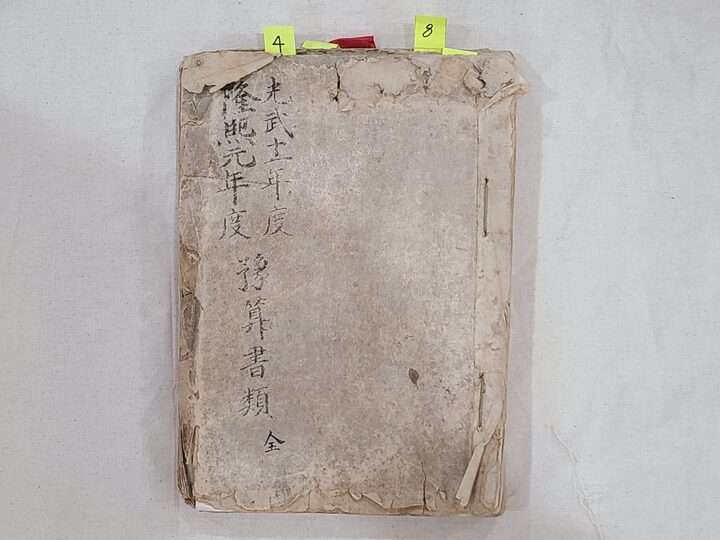 4
8
光武十一年度
隆熙元年度
豫算書類 全